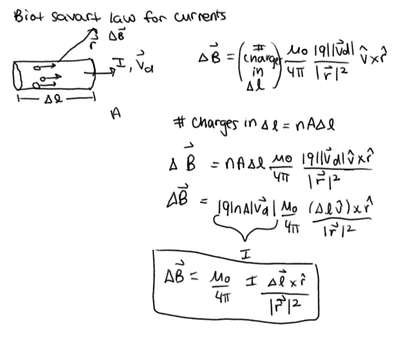 Biot savart law for currents
ΔB⃗
r⃗
I, V⃗d
Δl
A
ΔB⃗ = (# charges in Δl) μ₀/4π |q||V⃗d|/|r⃗|² v̂×r̂
# charges in Δl = nAΔl
ΔB⃗ = nAΔl μ₀/4π |q||V⃗d|v̂×r̂/|r⃗|²
ΔB⃗ = |q|nA|V⃗d| μ₀/4π (Δlv̂)×r̂/|r⃗|²
I
ΔB⃗ = μ₀/4π I Δl⃗×r̂/|r⃗|²